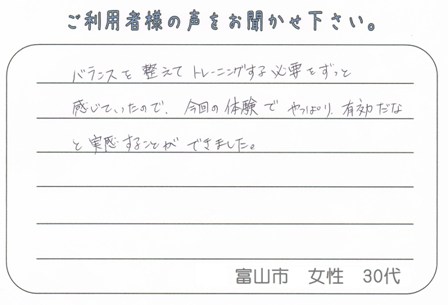 ご利用者様の声をお聞かせ下さい。
バランスを整えてトレーニングする必要をずっと
感じていたので、今回の体験でやっぱり有効だな
と実感することができました。
富山市 女性 30代